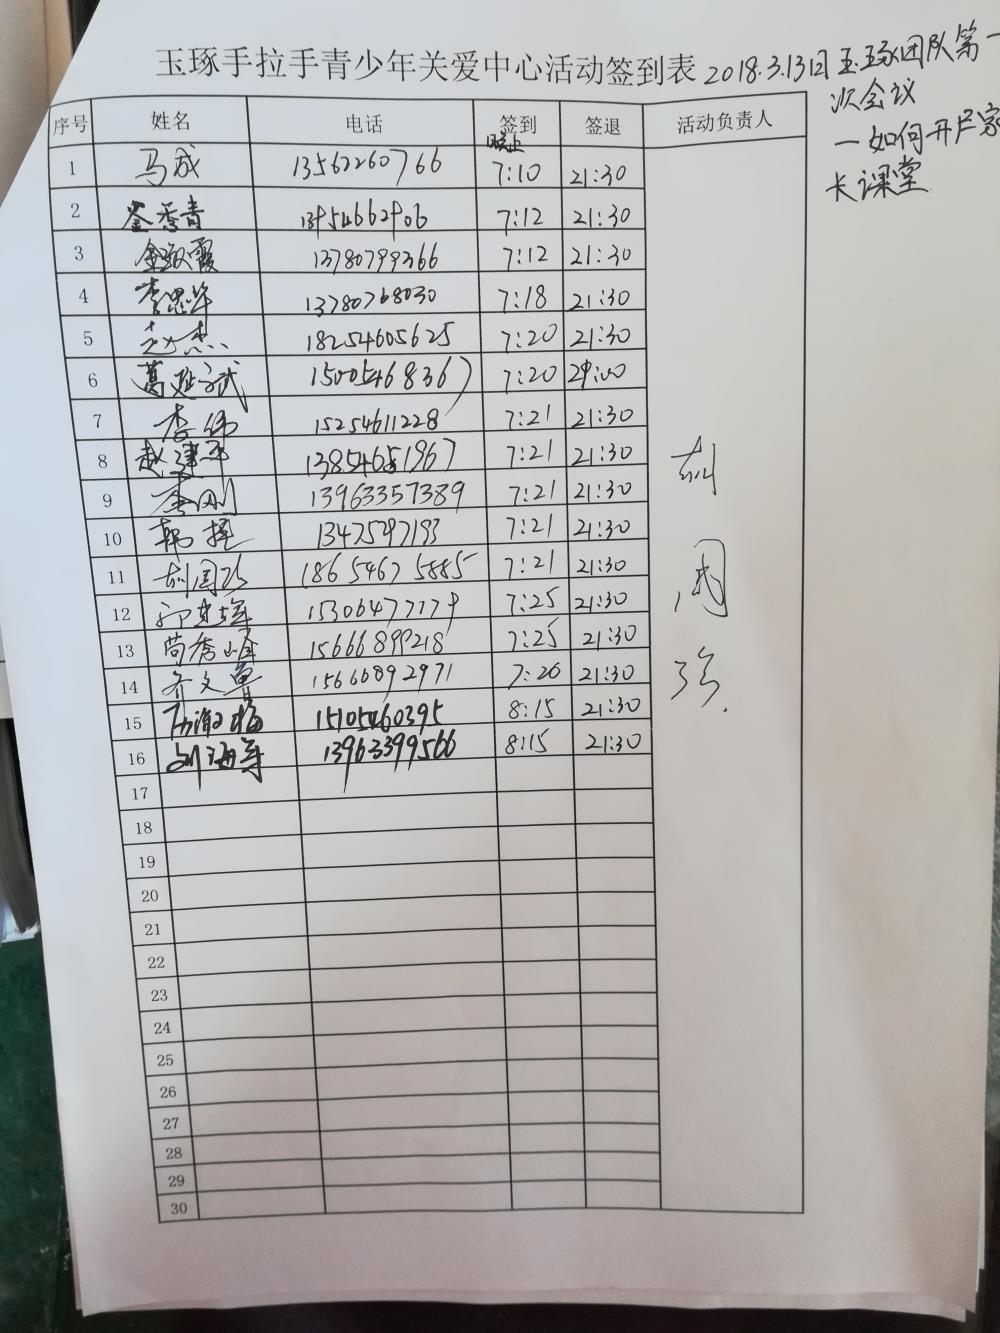 玉琢手拉手青少年关爱中心活动签到表 2018.3.13日 玉琢团队第一
次会议
一如何开户家
长课堂
序号 姓名 电话 签到 签退 活动负责人
晚上
1 马成 13562260766 7:10 21:30
2 秀青 7:12 21:30
3 霞 13780799366 7:12 21:30
4 李思华 13780768030 7:18 21:30
5 赵杰 18254605625 7:20 21:30
6 葛延武 15005468367 7:20 21:00
7 李伟 15254611228 7:21 21:30
8 赵建平 13854651967 7:21 21:30
9 李刚 13963357389 7:21 21:30
10 韩 13475297193 7:21 21:30
11 18654675885 7:21 21:30
12 15306477179 7:25 21:30
13 苟秀峰 15666899218 7:25 21:30
14 齐文鲁 15666892971 7:26 21:30
15 15105460395 8:15 21:30
16 刘海 13963399566 8:15 21:30
17
18
19
20
21
22
23
24
25
26
27
28
29
30